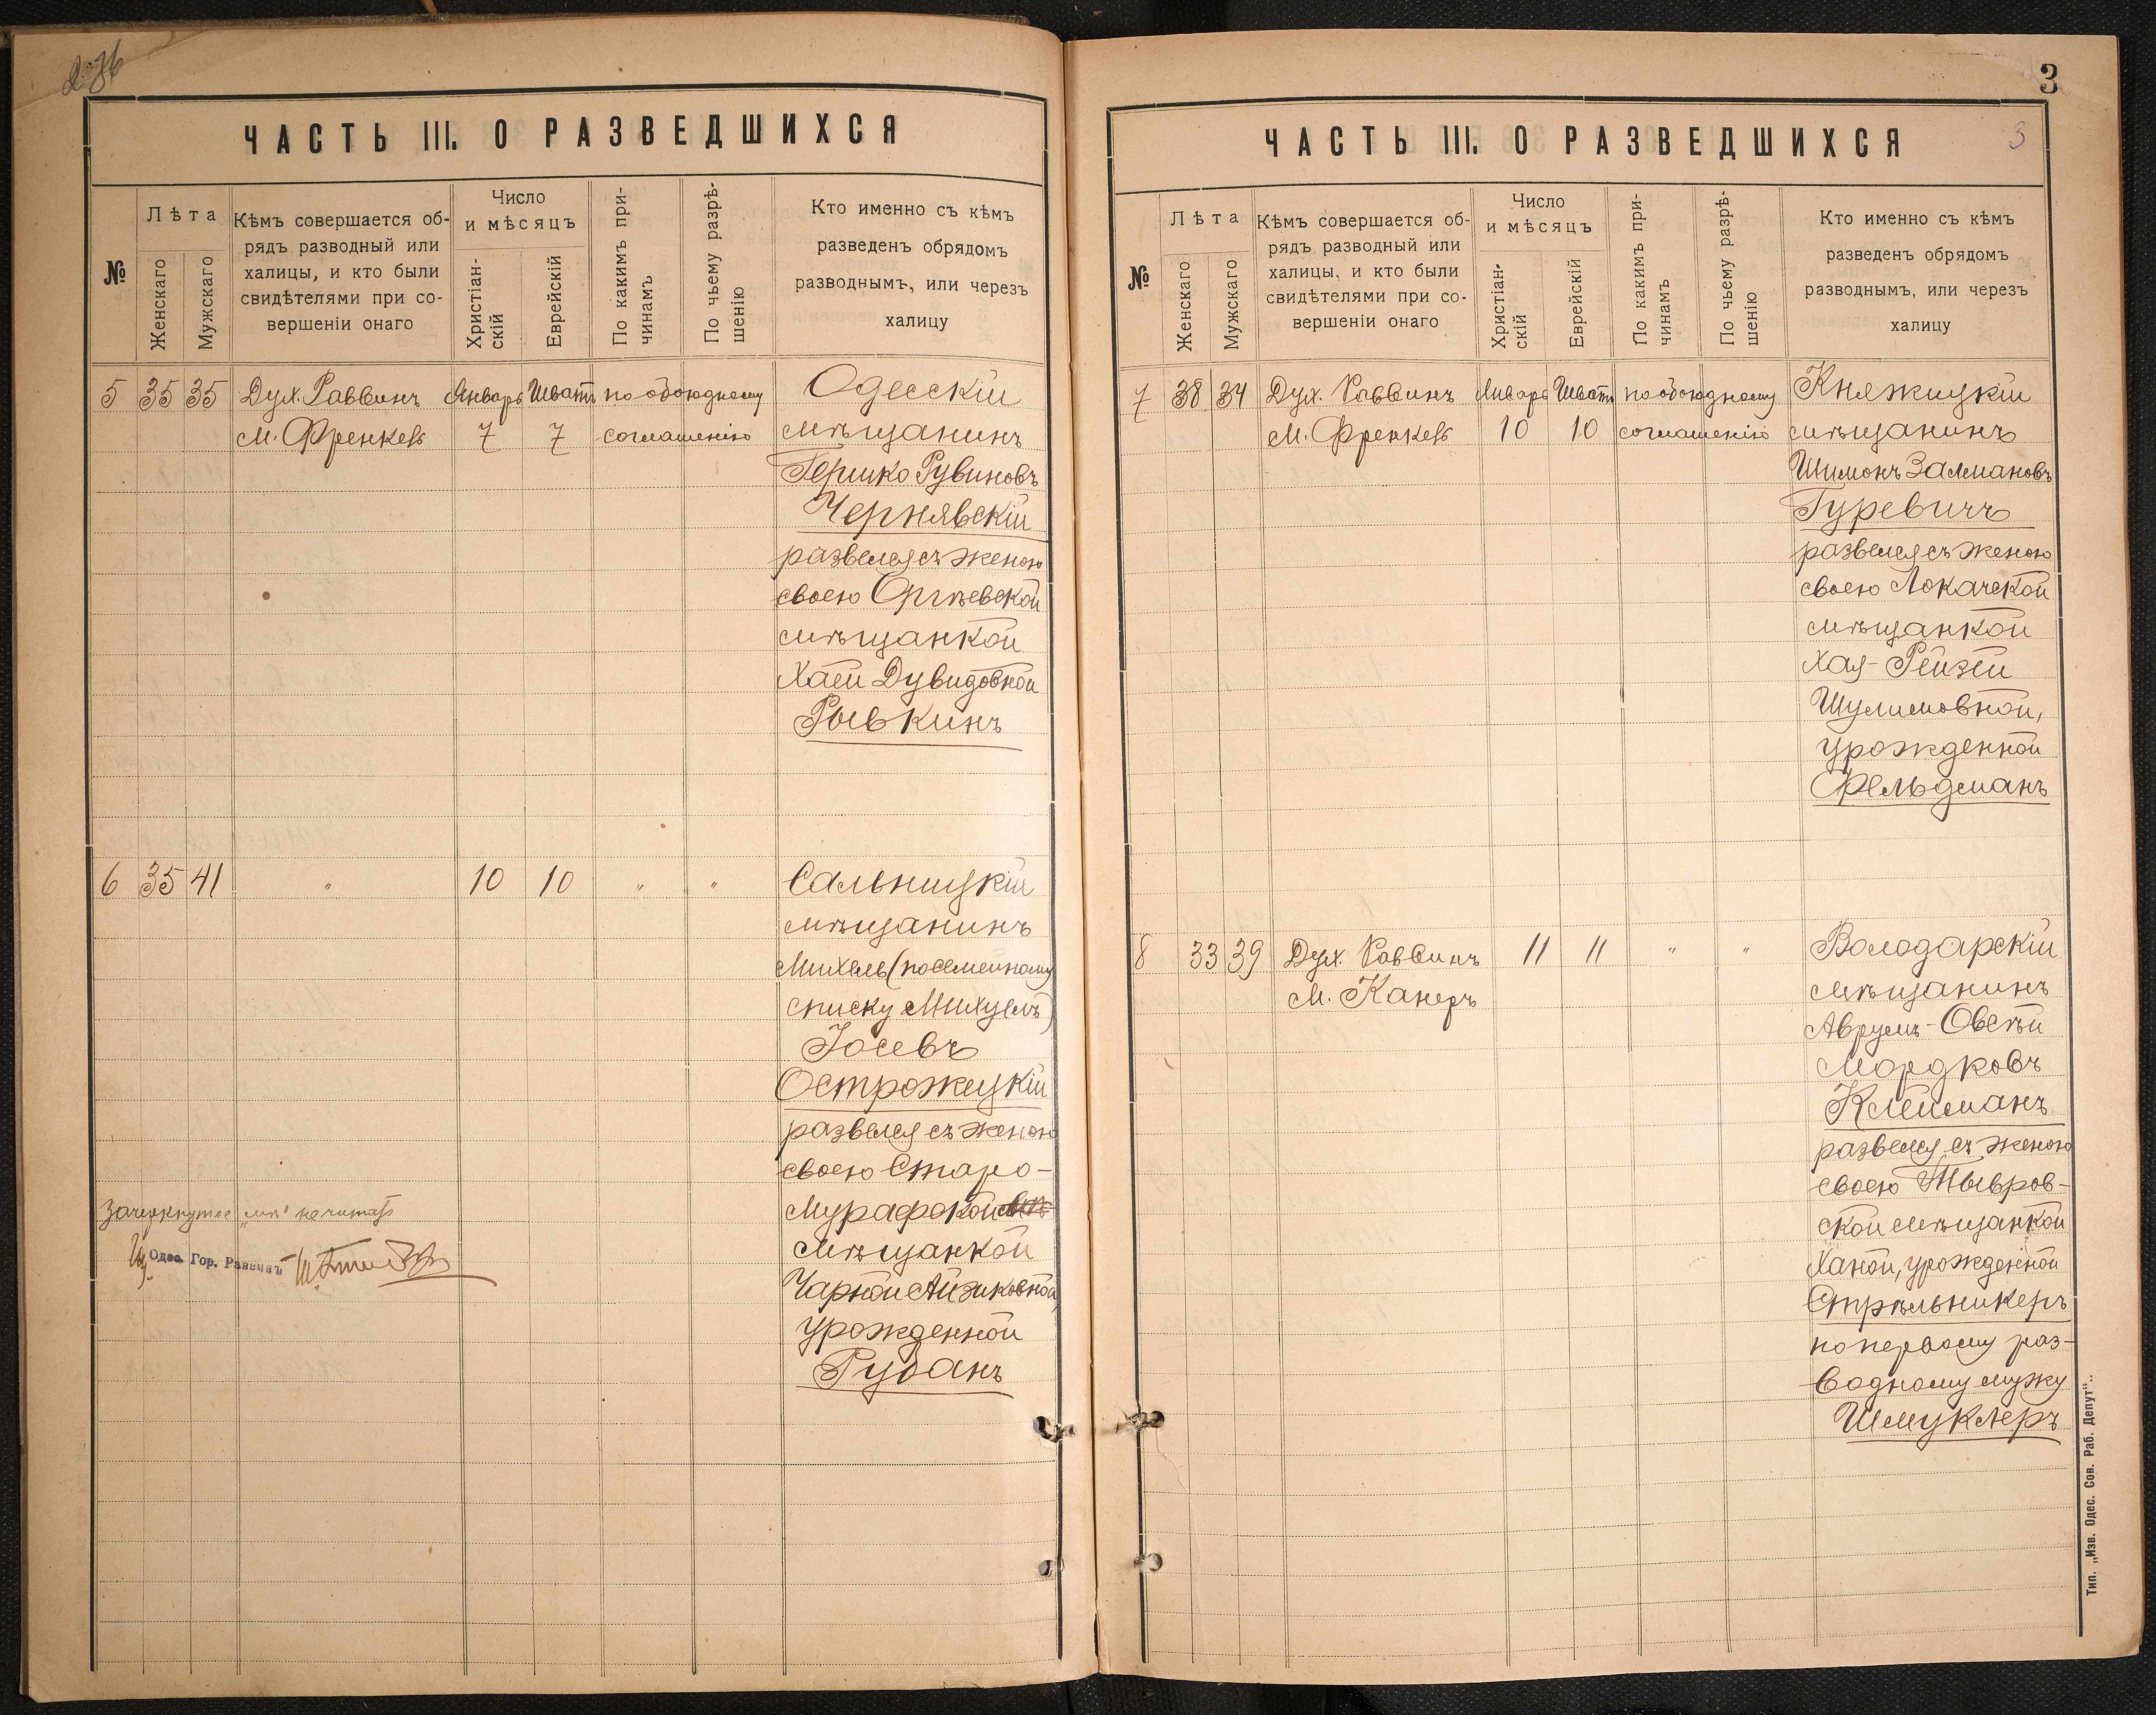 236
ЧАСТЬ III. О РАЗВЕДШИХСЯ
№
Лѣта
Женскаго
Мужскаго
Кѣмъ совершается об-
рядъ разводный или
халицы, и кто были
свидѣтелями при со-
вершеніи онаго
Число
и мѣсяцъ
Христіан-
скій
Еврейскій
По какимъ при-
чинамъ
По чьему разрѣ-
шенію
Кто именно съ кѣмъ
разведенъ обрядомъ
разводнымъ, или черезъ
халицу
5 35 35 Дух. Раввинъ Январь Шватъ по обоюдному Одесскій
М. Френкель 7 7 соглашенію мѣщанинъ
Гершко Рувиновъ
Чернявскій
развелся съ женою
своею Оргѣевской
мѣщанкой
Хаей Дувидовной
Рывкинъ
6 35 41 " 10 10 " " Сальницкій
мѣщанинъ
Михель (по семейному
списку Михуель)
Іосевъ
Острожецкій
развелся съ женою
своею Старо-
Мурафской
мѣщанкой
Чарной Айзиковной,
урожденной
Рубанъ
Зачеркнутое „мѣ" не читать
Одес. Гор. Раввинъ
3
3
ЧАСТЬ III. О РАЗВЕДШИХСЯ
№
Лѣта
Женскаго
Мужскаго
Кѣмъ совершается об-
рядъ разводный или
халицы, и кто были
свидѣтелями при со-
вершеніи онаго
Число
и мѣсяцъ
Христіан-
скій
Еврейскій
По какимъ при-
чинамъ
По чьему разрѣ-
шенію
Кто именно съ кѣмъ
разведенъ обрядомъ
разводнымъ, или черезъ
халицу
7 38 34 Дух. Раввинъ Январь Шватъ по обоюдному Княжицкій
М. Френкель 10 10 соглашенію мѣщанинъ
Шимонъ Залмановъ
Гуревичъ
развелся съ женою
своею Локачской
мѣщанкой
Хая-Рейзей
Шулимовной,
урожденной
Фельдманъ
8 33 39 Дух. Раввинъ 11 11 " " Володарскій
М. Канеръ мѣщанинъ
Аврумъ-Овсѣй
Мордковъ
Клейманъ
развелся съ женою
своею Тывров-
ской мѣщанкой
Ханой, урожденной
Стрѣльникеръ
по первому раз-
водному мужу
Шмуклеръ
Тип. „Изв. Одес. Сов. Раб. Депут"..